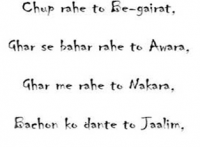 Chup rahe to Be-gairat,
Ghar se bahar rahe to Awara,
Ghar me rahe to Nakara,
Bachon ko dante to Jaalim,